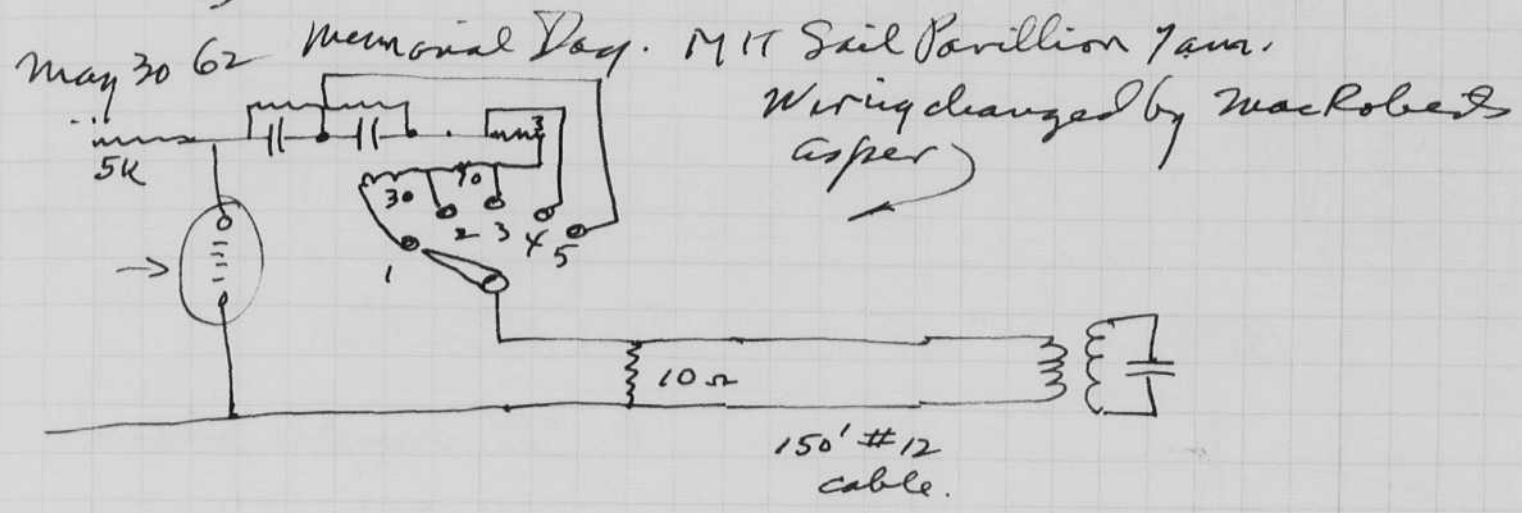 May 30 62 Memorial Day. MIT Sail Pavillion 7am.
Wiring changed by MacRoberts
asper
5K
3
30
10
1
2
3
4
5
10 Ω
150' #12
cable.